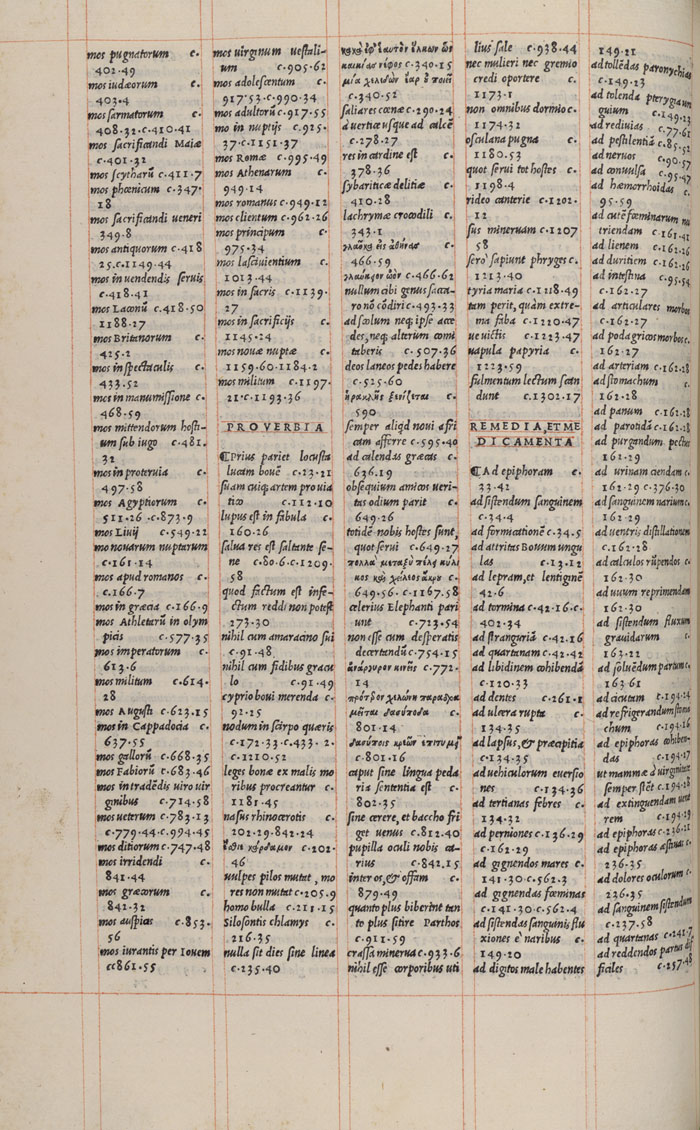 mos pugnatorum c.
402.49
mos iudæorum c.
403.4
mos sarmatorum c.
408.32.c.410.41
mos sacrificandi Maiæ
c.401.32
mos scytharũ c.411.7
mos phœnicum c.347.
18
mos sacrificandi ueneri
349.8
mos antiquorum c.418
25.c.1149.44
mos in uendendis seruis
c.418.41
mos Laconũ c.418.50
1188.27
mos Britanorum c.
425.2
mos in spectaculis c.
433.52
mos in manumissione c.
468.59
mos mittendorum hosti-
um sub iugo c.481.
32
mos in proteruia c.
497.58
mos Agyptiorum c.
511.26.c.873.9
mos Liuij c.549.22
mo nouarum nuptarum
c.161.14
mos apud romanos c.
c.166.7
mos in græcia c.166.9
mos Athletarũ in olym
picis c.577.35
mos imperatorum c.
613.6
mos militum c.614.
28
mos Augusti c.623.15
mos in Cappadocia c.
637.55
mos gallorũ c.668.35
mos Fabiorũ c.683.46
mos in tradẽdis uiro uir
ginibus c.714.58
mos ueterum c.783.13
c.779.44.c.994.45
mos ditiorum c.747.48
mos irridendi c.
841.44
mos græcorum c.
842.32
mos auspicas c.853.
56
mos iurantis per Iouem
cc861.55
mos uirginum uestali-
um c.905.62
mos adolescentum c.
917.53.c.990.34
mos adultorũ c.917.55
mo in nuptijs c.925.
37.c.1151.37
mos Romæ c.995.49
mos Athenarum c.
949.14
mos romanus c.949.12
mos clientum c.962.26
mos principum c.
975.34
mos lasciuientium c.
1013.44
mos in sacris c.1139.
27
mos in sacrificijs c.
1145.24
mos nouæ nuptæ c.
1159.60.1184.2
mos militum c.1197.
21.c.1193.36
PROVERBIA
¶Prius pariet locusta
lucam bouẽ c.23.21
suam cuiq; artem pro uia
tico c.112.10
lupus est in fabula c.
160.26
salua res est saltante se-
ne c.80.6.c.1209.
58
quod factum est infe-
ctum reddi non potest
273.30
nihil cum amaracino sui
c.91.48
nihil cum fidibus gracu
lo c.91.49
cyprio boui merenda c.
92.25
nodum in scirpo quæris
c.172.33.c.433.2.
c.1210.52
leges bonæ ex malis mo
ribus procreantur c.
1181.45
nasus rhinocerotis c.
202.29.842.24
κάρδαμον c.202.
46
uulpes pilos mutat, mo
res non mutat c.205.9
homo bulla c.211.15
Silosontis chlamys c.
216.35
nulla sit dies sine linea
c.235.40
c.340.15
μία χελιδὼν ἔαρ ὀ ποιεῖ
c.340.52
saliares cœnæ c.290.24
à uertice usque ad calcẽ
c.278.27
res in cardine est c.
378.36
sybariticæ delitiæ c.
410.28
lachrymæ crocodili c.
343.1
γλαῦκα εἰς ἀθήνας c.
466.59
c.466.62
nullum cibi genus sacca-
ro nõ cõdiri c.493.33
ad cœlum neq; ipse acce
des, neq; alterum comi
taberis c.507.36
deos laneos pedes habere
c.525.60
ἡρακλῆς ξενίζεται c.
590
semper aliqd noui afri
cam afferre c.595.40
ad calendas græcas c.
626.19
obsequium amicos ueri-
tas odium parit c.
649.26
totidẽ nobis hostes sunt,
quot serui c.649.27
πολλὰ μεταξὺ πέλει κύλι
κος καὶ χείλεος ἄκρου c.
649.56. c.1167.58
celerius Elephanti pari
unt c.723.54
non esse cum desperatis
decertandũ c.754.15
c.772.
14
801.14
c.801.16
caput sine lingua peda
ria sententia est c.
802.35
sine cerere, et baccho fri
get uenus c.812.40
pupilla oculi nobis ca-
rius c.842.15
inter os, & offam c.
879.49
quanto plus biberint tan
to plus sitire Parthos
c.911.59
crassa minerua c.933.6
nihil esse corporibus uti
lius sale c.938.44
nec mulieri nec gremio
credi oportere c.
1173.1
non omnibus dormio c.
1174.32
osculana pugna c.
1180.53
quot serui tot hostes c.
1198.4
rideo canterie c.1202.
12
sus mineruam c.1207
58
sero sapiunt phryges c.
1213.40
tyria maria c.1118.49
tam perit, quàm extre-
ma faba c.1220.47
ue uictis c.1223.47
uapula papyria c.
1223.59
fulmentum lectum scan
dunt c.1302.17
REMEDIA, ET ME
DICAMENTA
¶Ad epiphoram c.
33.42
ad sistendum sanguinem
c.34.4
ad formicationẽ c.34.5
ad attritas Bouum ungu
las c.13.12
ad lepram, et lentiginẽ
42.6
ad tormina c.42.16.c.
402.34
ad stranguriã c.42.16
ad quartanam c.42.42
ad libidinem cohibendã
c.120.33
ad dentes c.261.1
ad ulcera rupta c.
134.35
ad lapsus, & præcipitia
c.134.35
ad uehiculorum euersio
nes c.134.36
ad tertianas febres c.
134.32
ad perniones c.136.29
c.162.29
ad gignendos mares c.
141.30.c.562.3
ad gignendas fœminas
c.141.30.c.562.4
ad sistendas sanguinis flu
xiones è naribus c.
149.20
ad digitos male habentes
149.21
ad tollẽdas paronychias
c.149.23
ad tolenda pterygia un
guium c.149.23
ad rediuias c.77.61
ad pestilentiã c.85.52
ad neruos c.90.57
ad conuulsa c.95.47
ad hæmorrhoidas c.
95.59
ad cutẽ fœminarum nu
triendam c.161.41
ad lienem c.162.26
ad duritiem c.162.26
ad intestina c.95.54
c.162.27
ad articulares morbos
c.162.27
ad podagricos morbos c.
162.27
ad arteriam c.162.28
ad stomachum c.
162.28
ad panum c.162.28
ad parotidã c.162.28
ad purgandum pectus
162.29
ad urinam ciendam c.
162.29 c.376.30
ad sanguinem narium c.
162.29
ad uentris distillationem
c.162.28
ad calculos rũpendos c.
162.30
ad uuum reprimendam
162.30
ad sistendum fluxum
grauidarum c.
163.22
ad soluẽdum partum c.
163.61
ad cicutam c.194.24
ad refrigerandum stoma
chum c.194.16
ad epiphoras cohiben-
das c.194.17
ut mammæ à uirginitate
semper stẽt c.194.28
ad extinguendam uene
rem c.194.29
ad epiphoras c.236.21
ad epiphoras æstiuas c.
236.35
ad dolores oculorum c.
226.35
ad sanguinem sistendum
c.237.58
ad quartanas c.241.7
ad reddendos partus dif
ficiles c.257.48